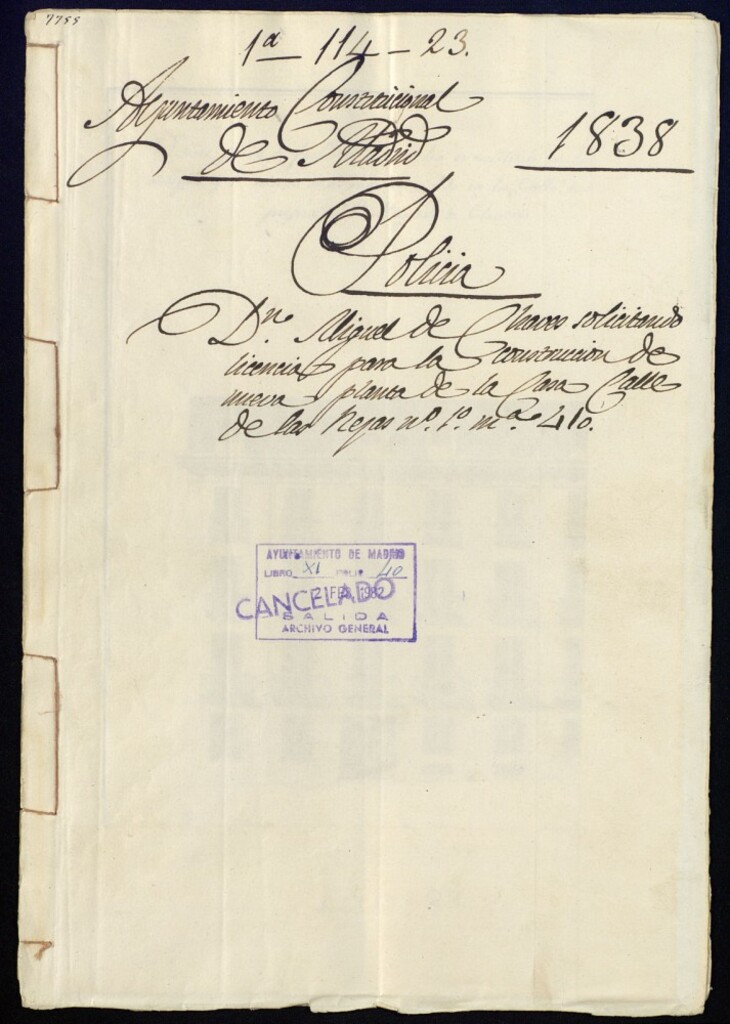 7755
1ª - 114 - 23.
Ayuntamiento Constitucional
de Madrid
1838
Policia
Dn. Miguel de Chaves solicitando
licencia para la construccion de
nueva planta de la Casa Calle
de las Rejas nº. 1º. mª. 410.
AYUNTAMIENTO DE MADRID
LIBRO XI FOLIO 40
2 FEB. 1982
CANCELADO
SALIDA
ARCHIVO GENERAL